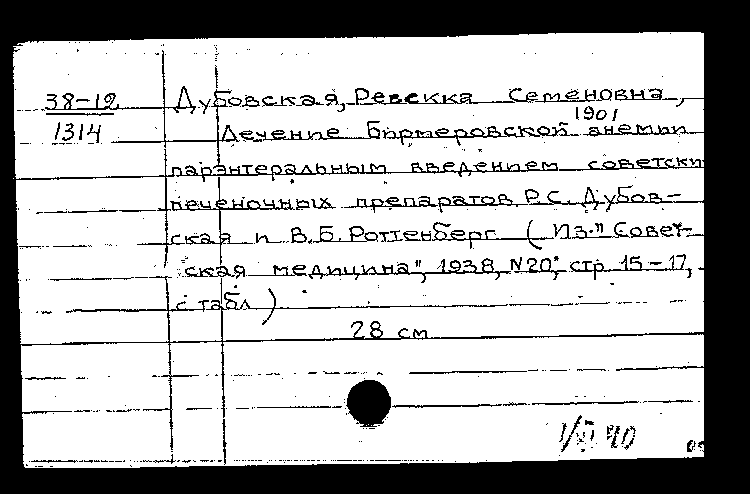 38-12
1314
Дубовская, Ревекка Семеновна,
1901
Лечение бирмеровской анемии
парэнтеральным введением советски
печеночных препаратов Р.С. Дубов-
ская и В.Б. Роттенберг (Из "Совет-
ская медицина", 1938, N20, стр. 15-17,
с табл)
28 см
1/XI 40